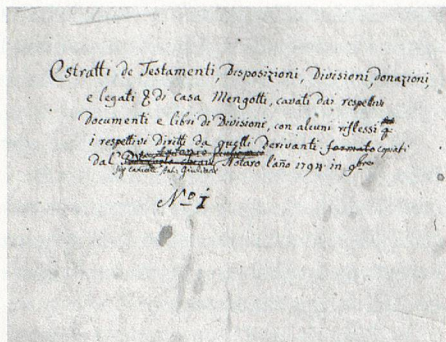 Estratti de Testamenti, Disposizioni, Divisioni, donazioni,
e legati & di casa Mengotti, cavati dai respettivi
Documenti e libri di Divisioni, con alcuni riflessi
i respettivi diritti da quelli derivanti formato copiati
dal Notaro l'año 1794 in 9bre
Nº 1